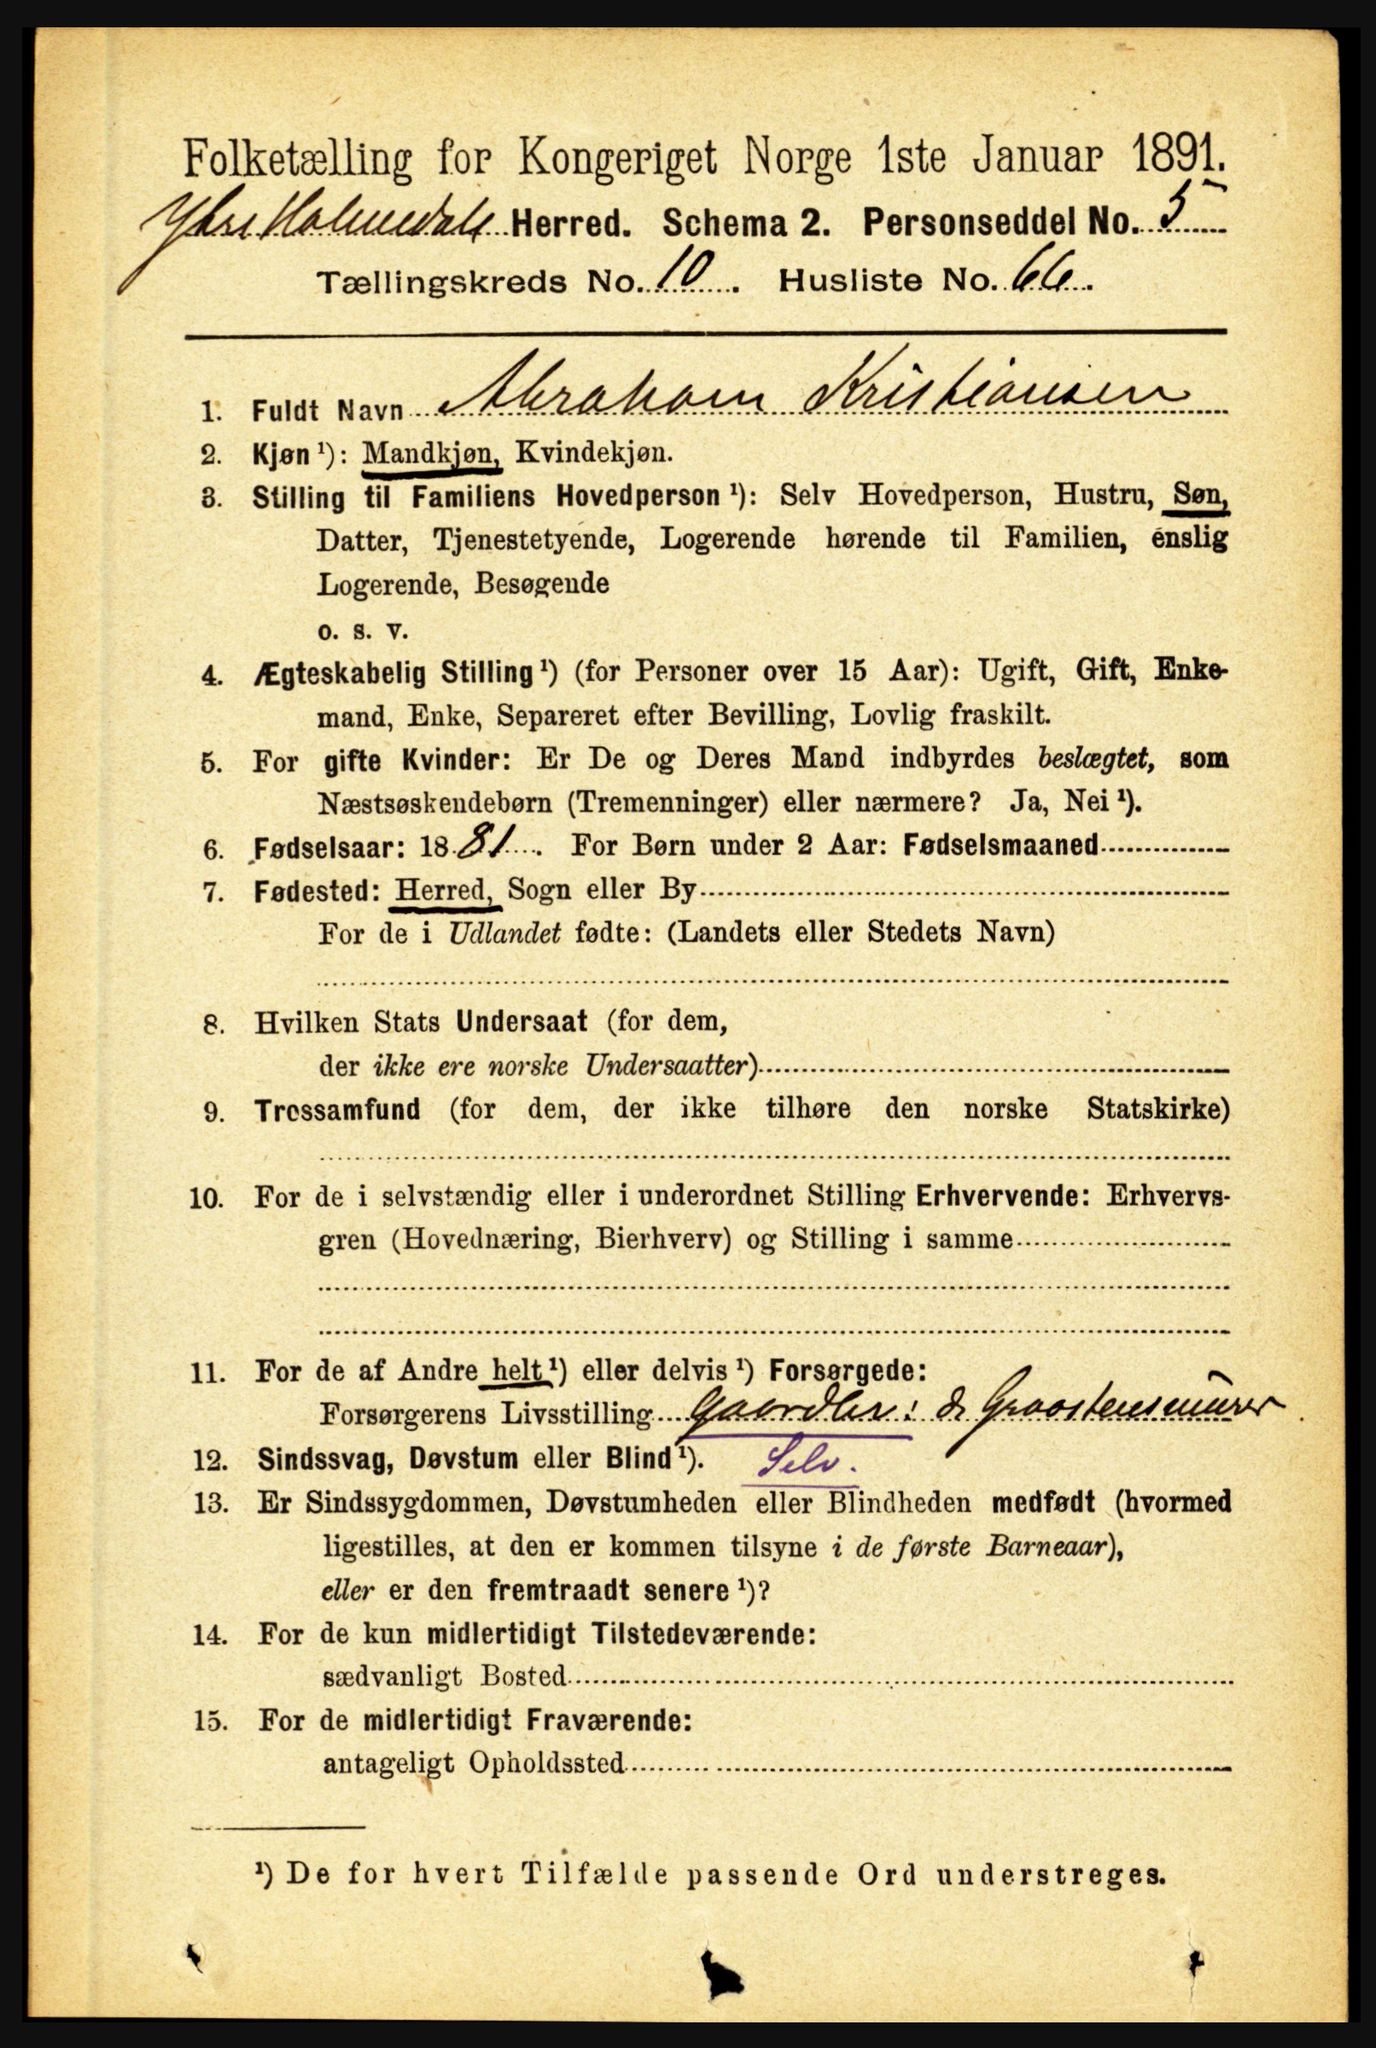 Folketælling for Kongeriget Norge 1ste Januar 1891.
Ytre Holmedals Herred. Schema 2. Personseddel No. 5
Tællingskreds No. 10. Husliste No. 66.
1. Fuldt Navn Abraham Kristiansen
2. Kjøn ¹): Mandkjøn, Kvindekjøn.
3. Stilling til Familiens Hovedperson ¹): Selv Hovedperson, Hustru, Søn,
Datter, Tjenestetyende, Logerende hørende til Familien, enslig
Logerende, Besøgende
o. s. v.
4. Ægteskabelig Stilling ¹) (for Personer over 15 Aar): Ugift, Gift, Enke-
mand, Enke, Separeret efter Bevilling, Lovlig fraskilt.
5. For gifte Kvinder: Er De og Deres Mand indbyrdes beslægtet, som
Næstsøskendebørn (Tremenninger) eller nærmere? Ja, Nei ¹).
6. Fødselsaar: 1881. For Børn under 2 Aar: Fødselsmaaned
7. Fødested: Herred, Sogn eller By
For de i Udlandet fødte: (Landets eller Stedets Navn)
8. Hvilken Stats Undersaat (for dem,
der ikke ere norske Undersaatter)
9. Trossamfund (for dem, der ikke tilhøre den norske Statskirke)
10. For de i selvstændig eller i underordnet Stilling Erhvervende: Erhvervs-
gren (Hovednæring, Bierhverv) og Stilling i samme
11. For de af Andre helt ¹) eller delvis ¹) Forsørgede:
Forsørgerens Livsstilling Gaardbr: & Graastensmurer
12. Sindssvag, Døvstum eller Blind ¹). Selv.
13. Er Sindssygdommen, Døvstumheden eller Blindheden medfødt (hvormed
ligestilles, at den er kommen tilsyne i de første Barneaar),
eller er den fremtraadt senere ¹)?
14. For de kun midlertidigt Tilstedeværende:
sædvanligt Bosted
15. For de midlertidigt Fraværende:
antageligt Opholdssted
¹) De for hvert Tilfælde passende Ord understreges.